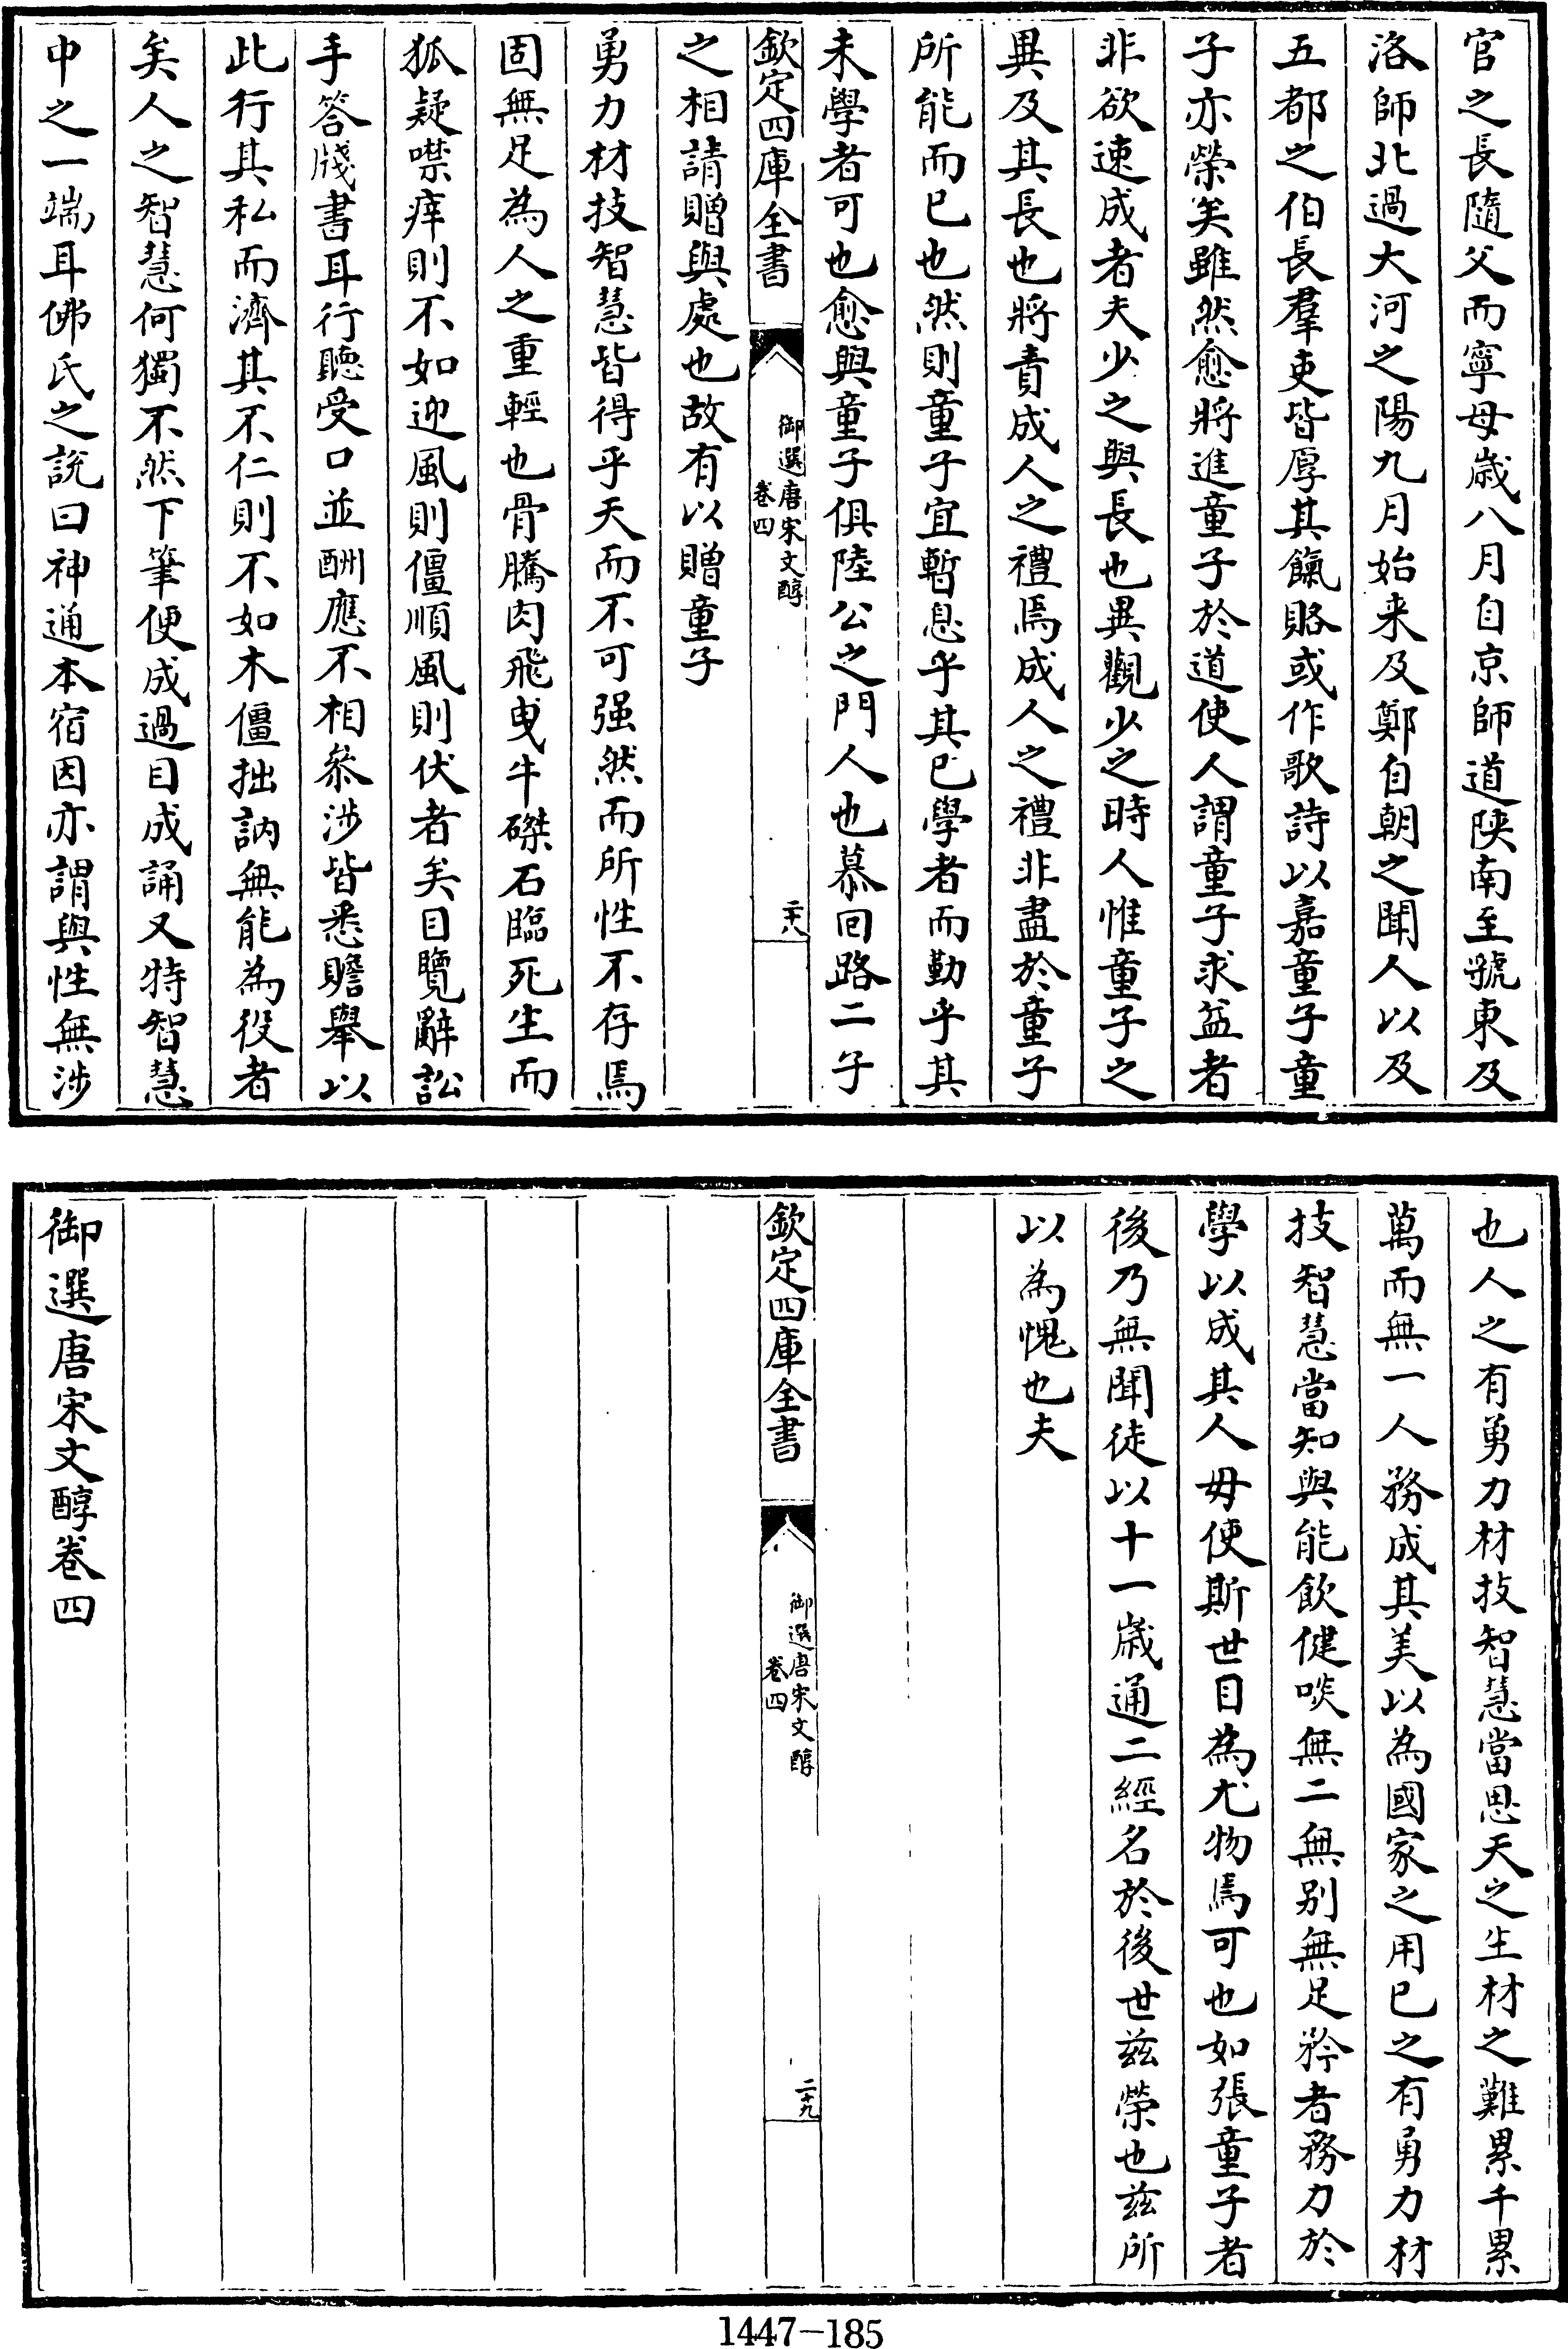 官之長隨父而寧母歲八月自京師道陜南至虢東及
洛師北過大河之陽九月始來及鄭自朝之聞人以及
五都之伯長羣吏皆厚其餼賂或作歌詩以嘉童子童
子亦榮矣雖然愈將進童子於道使人謂童子求益者
非欲速成者夫少之與長也異觀少之時人惟童子之
異及其長也將責成人之禮焉成人之禮非盡於童子
所能而已也然則童子宜暫息乎其已學者而勤乎其
未學者可也愈與童子俱陸公之門人也慕回路二子
欽定四庫全書
御選唐宋文醇
卷四
二十八
之相請贈與處也故有以贈童子
勇力材技智慧皆得乎天而不可强然而所性不存焉
固無足為人之重輕也骨騰肉飛曵牛磔石臨死生而
狐疑噤痒則不如迎風則僵順風則伏者矣目覽辭訟
手答牋書耳行聽受口並酬應不相叅涉皆悉贍舉以
此行其私而濟其不仁則不如木僵拙訥無能為役者
矣人之智慧何獨不然下筆便成過目成誦又特智慧
中之一端耳佛氏之説曰神通本宿因亦謂與性無涉
也人之有勇力材技智慧當思天之生材之難累千累
萬而無一人務成其美以為國家之用已之有勇力材
技智慧當知與能飲健啖無二無别無足矜者務力於
學以成其人毋使斯世目為尤物焉可也如張童子者
後乃無聞徒以十一歳通二經名於後世兹榮也兹所
以為愧也夫
欽定四庫全書
御選唐宋文醇
卷四
二十九
御選唐宋文醇卷四
1447-185